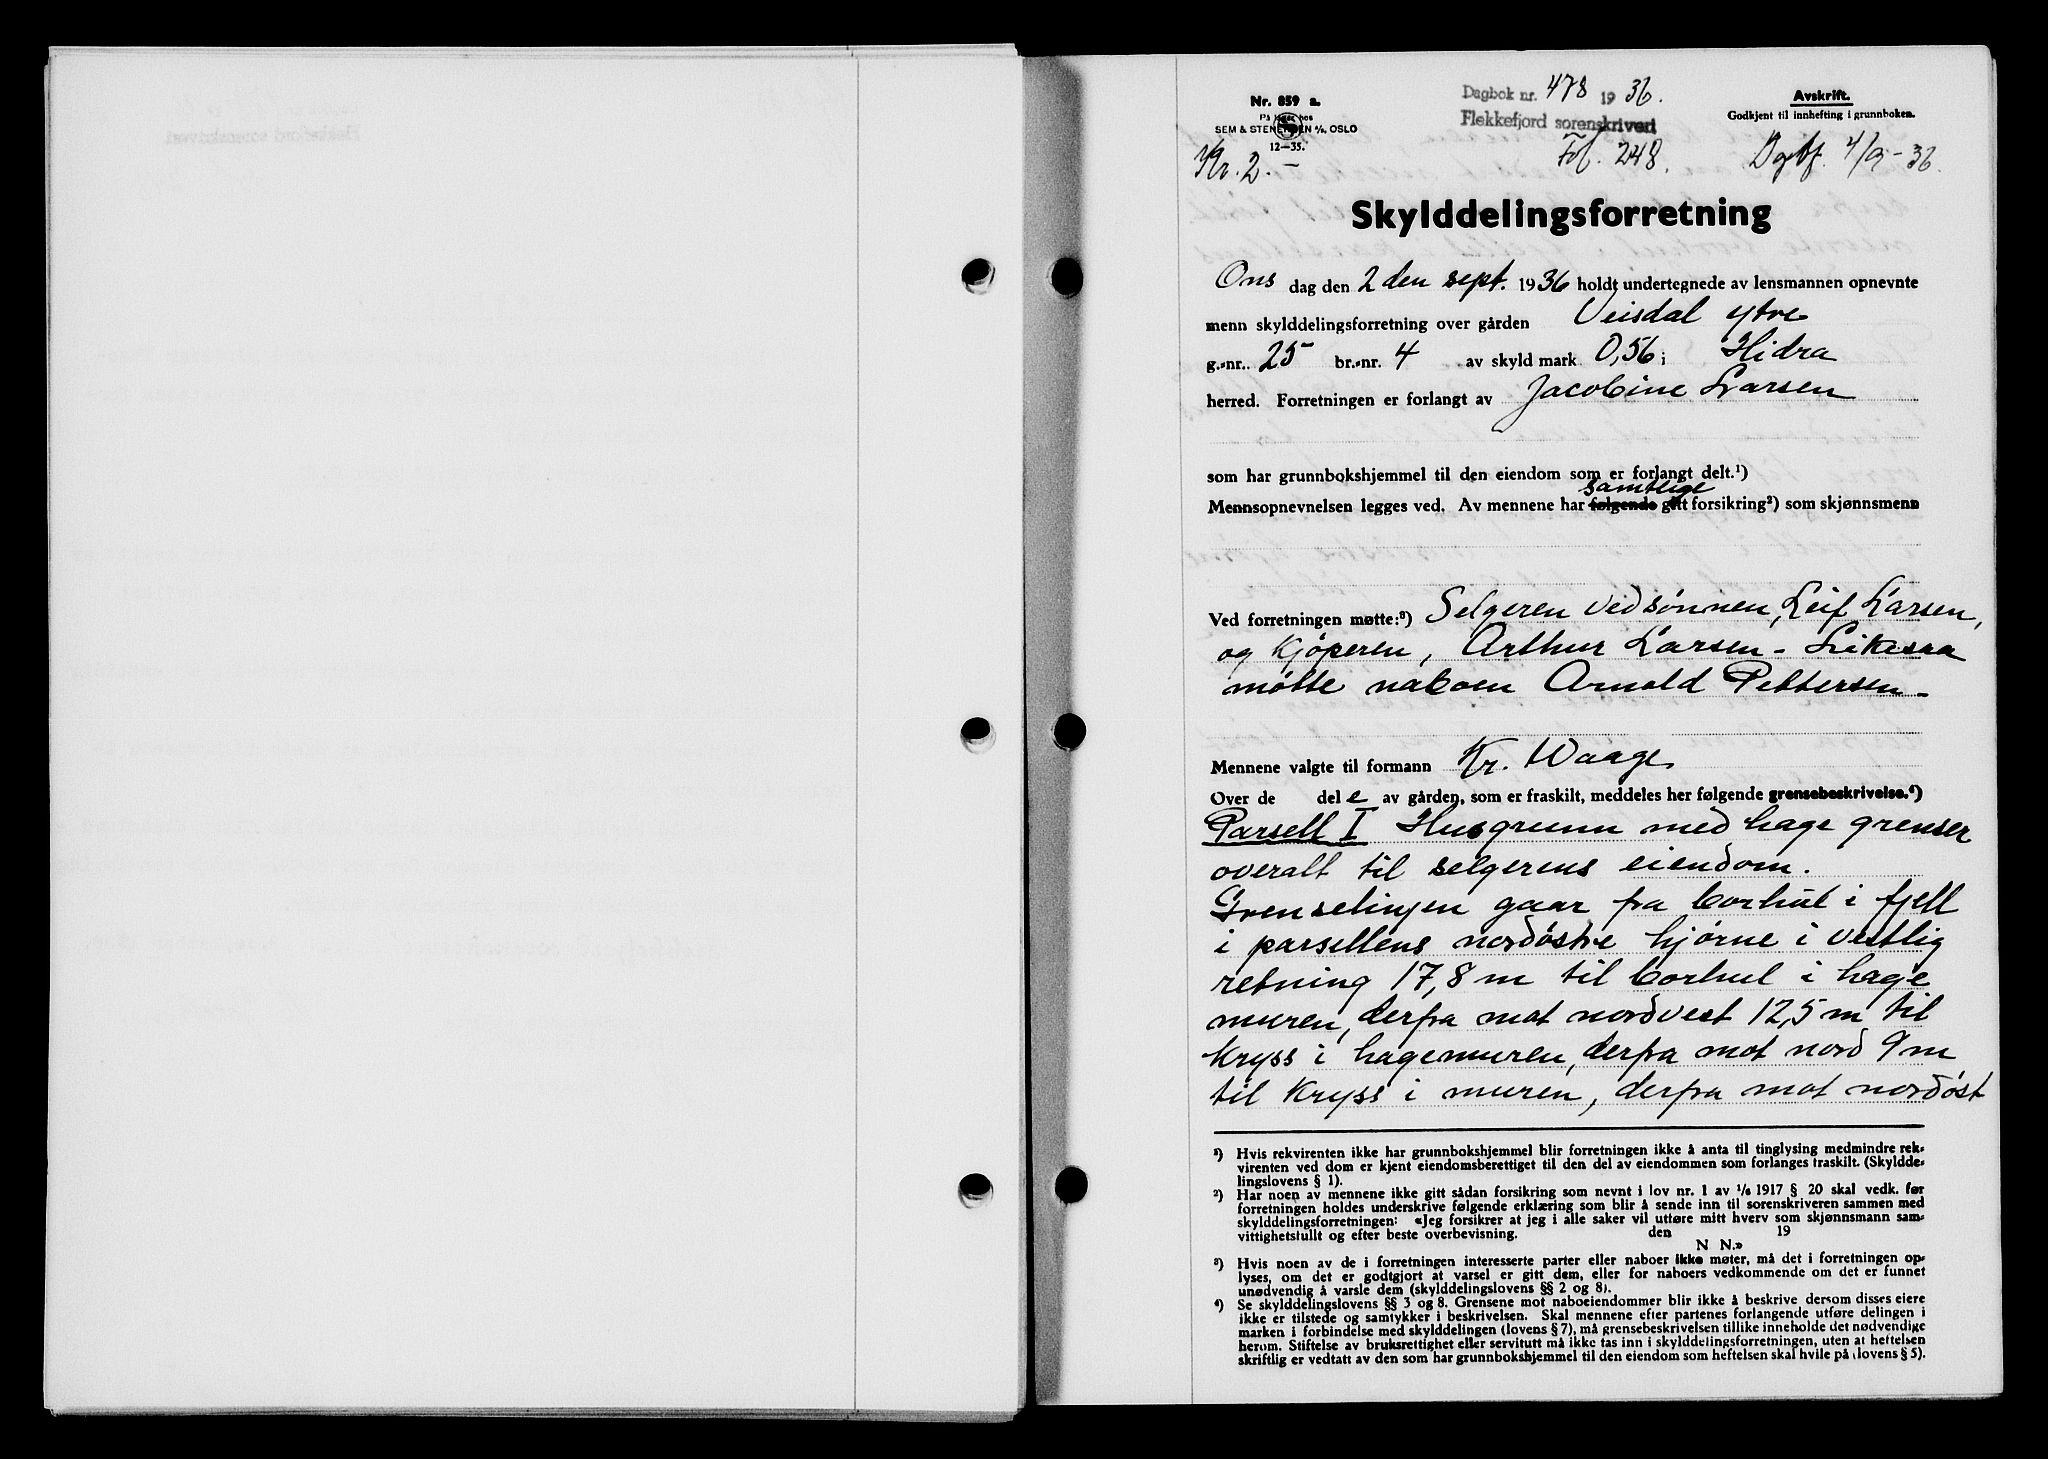 Nr. 859 a.
På lager hos
SEM & STENERSEN A/S, OSLO
12—35.
Dagbok nr. 478 1936.
Flekkefjord sorenskriveri
Avskrift.
Godkjent til innhefting i grunnboken.
Kr. 2.-
Fol. 248.
Dagbf. 4/9-36.
Skylddelingsforretning
Ons dag den 2 den sept. 1936 holdt undertegnede av lensmannen opnevnte
menn skylddelingsforretning over gården Veisdal ytre
g.-nr. 25 br.-nr. 4 av skyld mark 0,56 i Hidra
herred. Forretningen er forlangt av Jacobine Larsen
som har grunnbokshjemmel til den eiendom som er forlangt delt.¹)
samtlige
Mennsopnevnelsen legges ved. Av mennene har følgende gitt forsikring²) som skjønnsmenn
Ved forretningen møtte:³) Selgeren ved sønnen, Leif Larsen,
og kjøperen, Arthur Larsen - Likesaa
møtte naboen Arnold Pettersen -
Mennene valgte til formann Kr. Waage
Over de del e av gården, som er fraskilt, meddeles her følgende grensebeskrivelse.⁴)
Parsell I Husgrunn med hage grenser
overalt til selgerens eiendom.
Grenselinjen gaar fra borhul i fjell
i parsellens nordøstre hjørne i vestlig
retning 17,8 m til borhul i hage
muren, derfra mot nordvest 12,5 m til
kryss i hagemuren, derfra mot nord 9 m
til kryss i muren, derfra mot nordøst
¹) Hvis rekvirenten ikke har grunnbokshjemmel blir forretningen ikke å anta til tinglysing medmindre rek-
virenten ved dom er kjent eiendomsberettiget til den del av eiendommen som forlanges fraskilt. (Skyldde-
lingslovens § 1).
²) Har noen av mennene ikke gitt sådan forsikring som nevnt i lov nr. 1 av 1/6 1917 § 20 skal vedk. før
forretningen holdes underskrive følgende erklæring som blir å sende inn til sorenskriveren sammen med
skylddelingsforretningen: «Jeg forsikrer at jeg i alle saker vil utføre mitt hverv som skjønnsmann sam-
vittighetsfullt og efter beste overbevisning. den 19
N N.»
³) Hvis noen av de i forretningen interesserte parter eller naboer ikke møter, må det i forretningen op-
lyses, om det er godtgjort at varsel er gitt dem, eller for naboers vedkommende om det er funnet
unødvendig å varsle dem (skylddelingslovens §§ 2 og 8).
⁴) Se skylddelingslovens §§ 3 og 8. Grensene mot naboeiendommer blir ikke å beskrive dersom disses eiere
ikke er tilstede og samtykker i beskrivelsen. Skal mennene efter partenes forlangende utføre delingen i
marken i forbindelse med skylddelingen (lovens § 7), må grensebeskrivelsen tillike inneholde det nødvendige
herom. Stiftelse av bruksrettighet eller servitutt må ikke tas inn i skylddelingsforretningen, uten at heftelsen
skriftlig er vedtatt av den som har grunnbokshjemmel til den eiendom som heftelsen skal hvile på (lovens § 5).